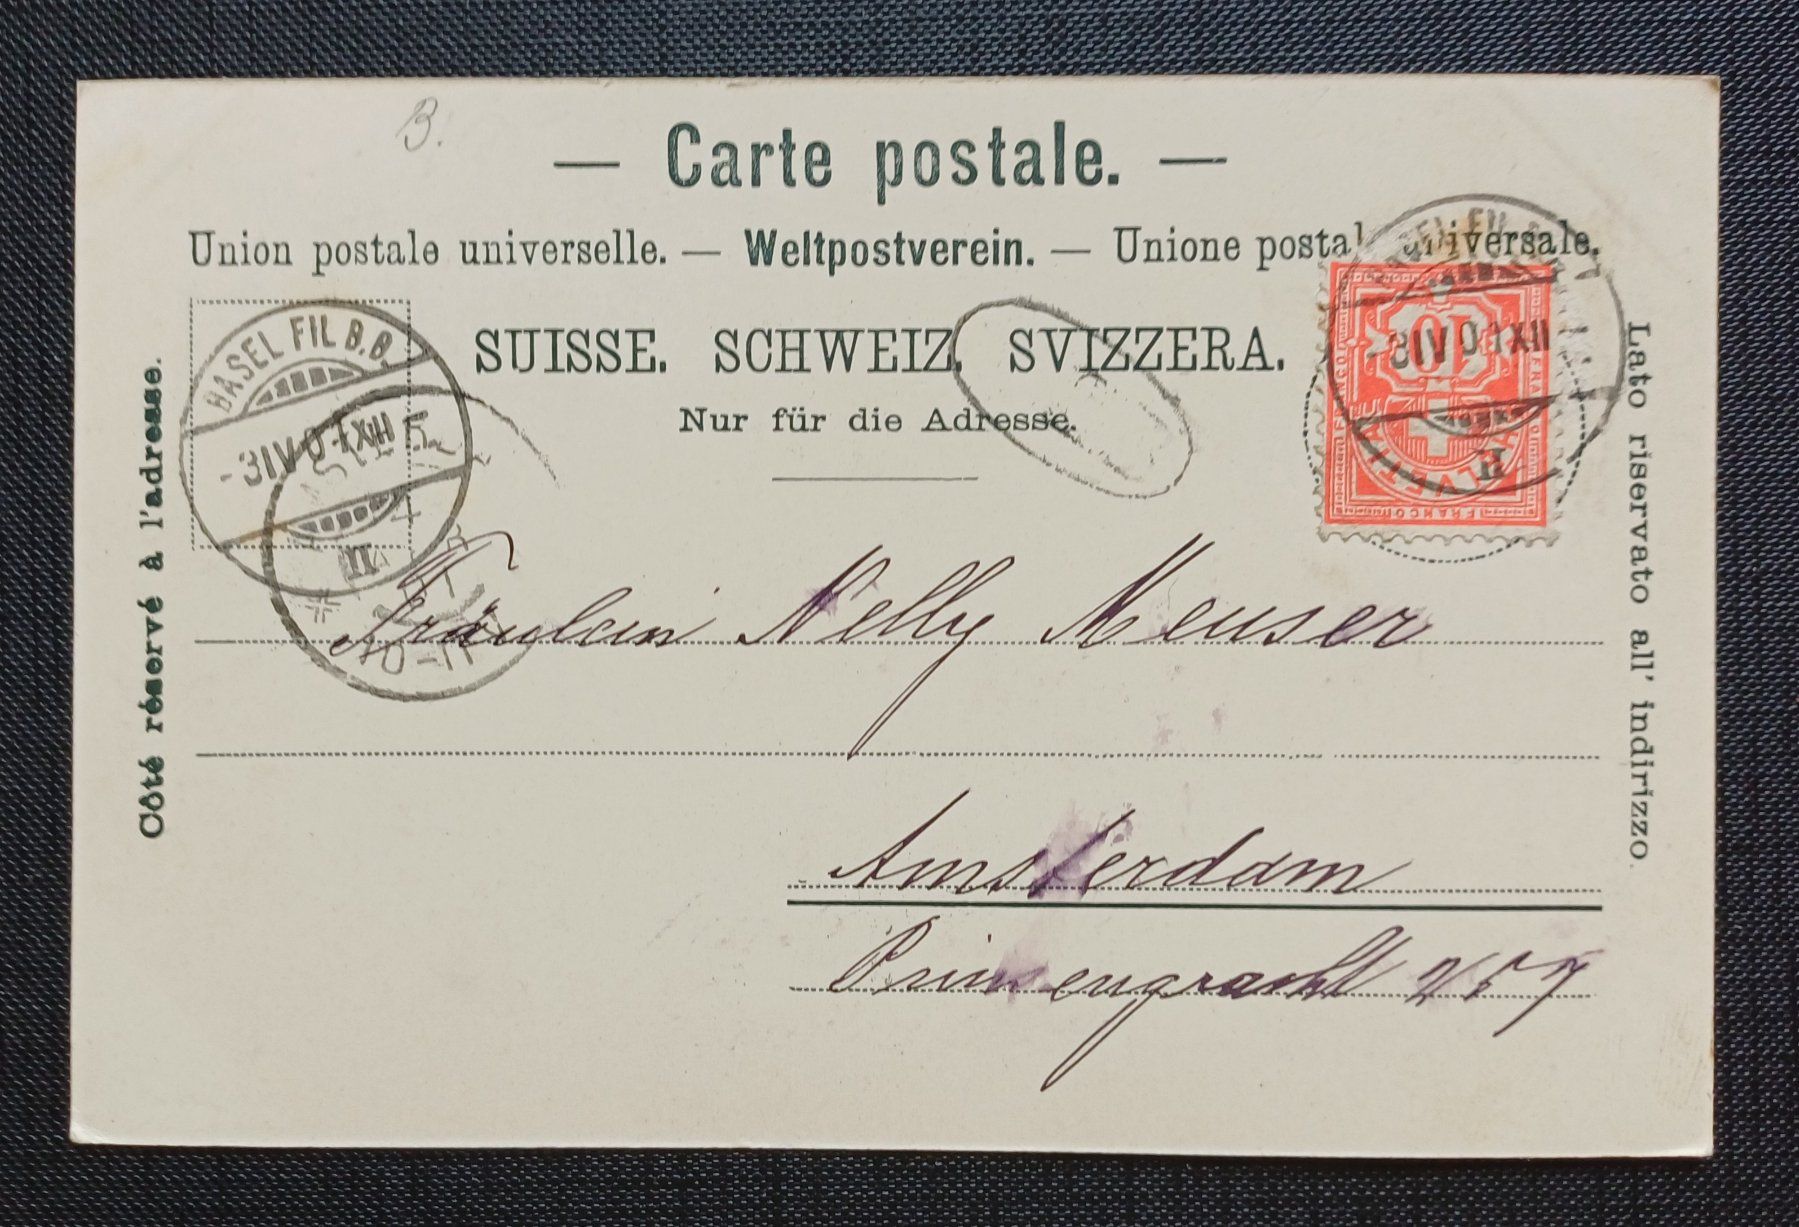 B.
— Carte postale. —
Union postale universelle. — Weltpostverein. — Unione postale universale.
SUISSE. SCHWEIZ. SVIZZERA.
Nur für die Adresse.
Côté réservé à l'adresse.
Lato riservato all' indirizzo.
BASEL FIL B.B.
-3 IV 01 XII
II
10-11
BASEL FIL B.
-3 IV 01 XII
II
10
FRANCO
HELVETIA
Fräulein Nelly Meuser
Amsterdam
Prinsengracht 257